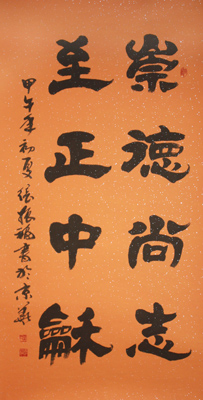 崇德尚志
至正中龢
甲午年初夏張振福書於京華